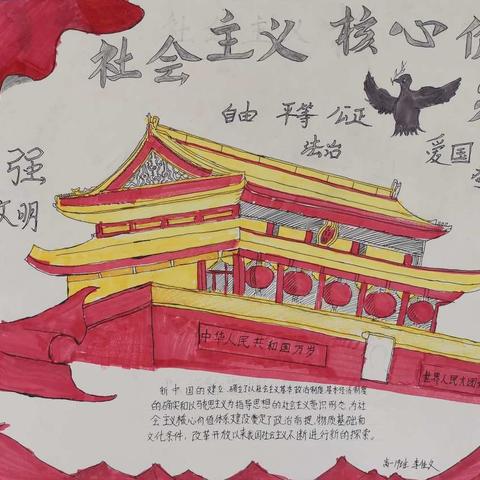 社会主义 核心价
自由 平等 公正
法治
爱国
强
文明
中华人民共和国万岁
世界人民大团
新中国的建立,确立了以社会主义基本政治制度、基本经济制度
的确实和以马克思主义为指导思想的社会主义意识形态,为社
会主义核心价值体系建设奠定了政治前提、物质基础和
文化条件。改革开放以来我国社会主义不断进行新的探索。